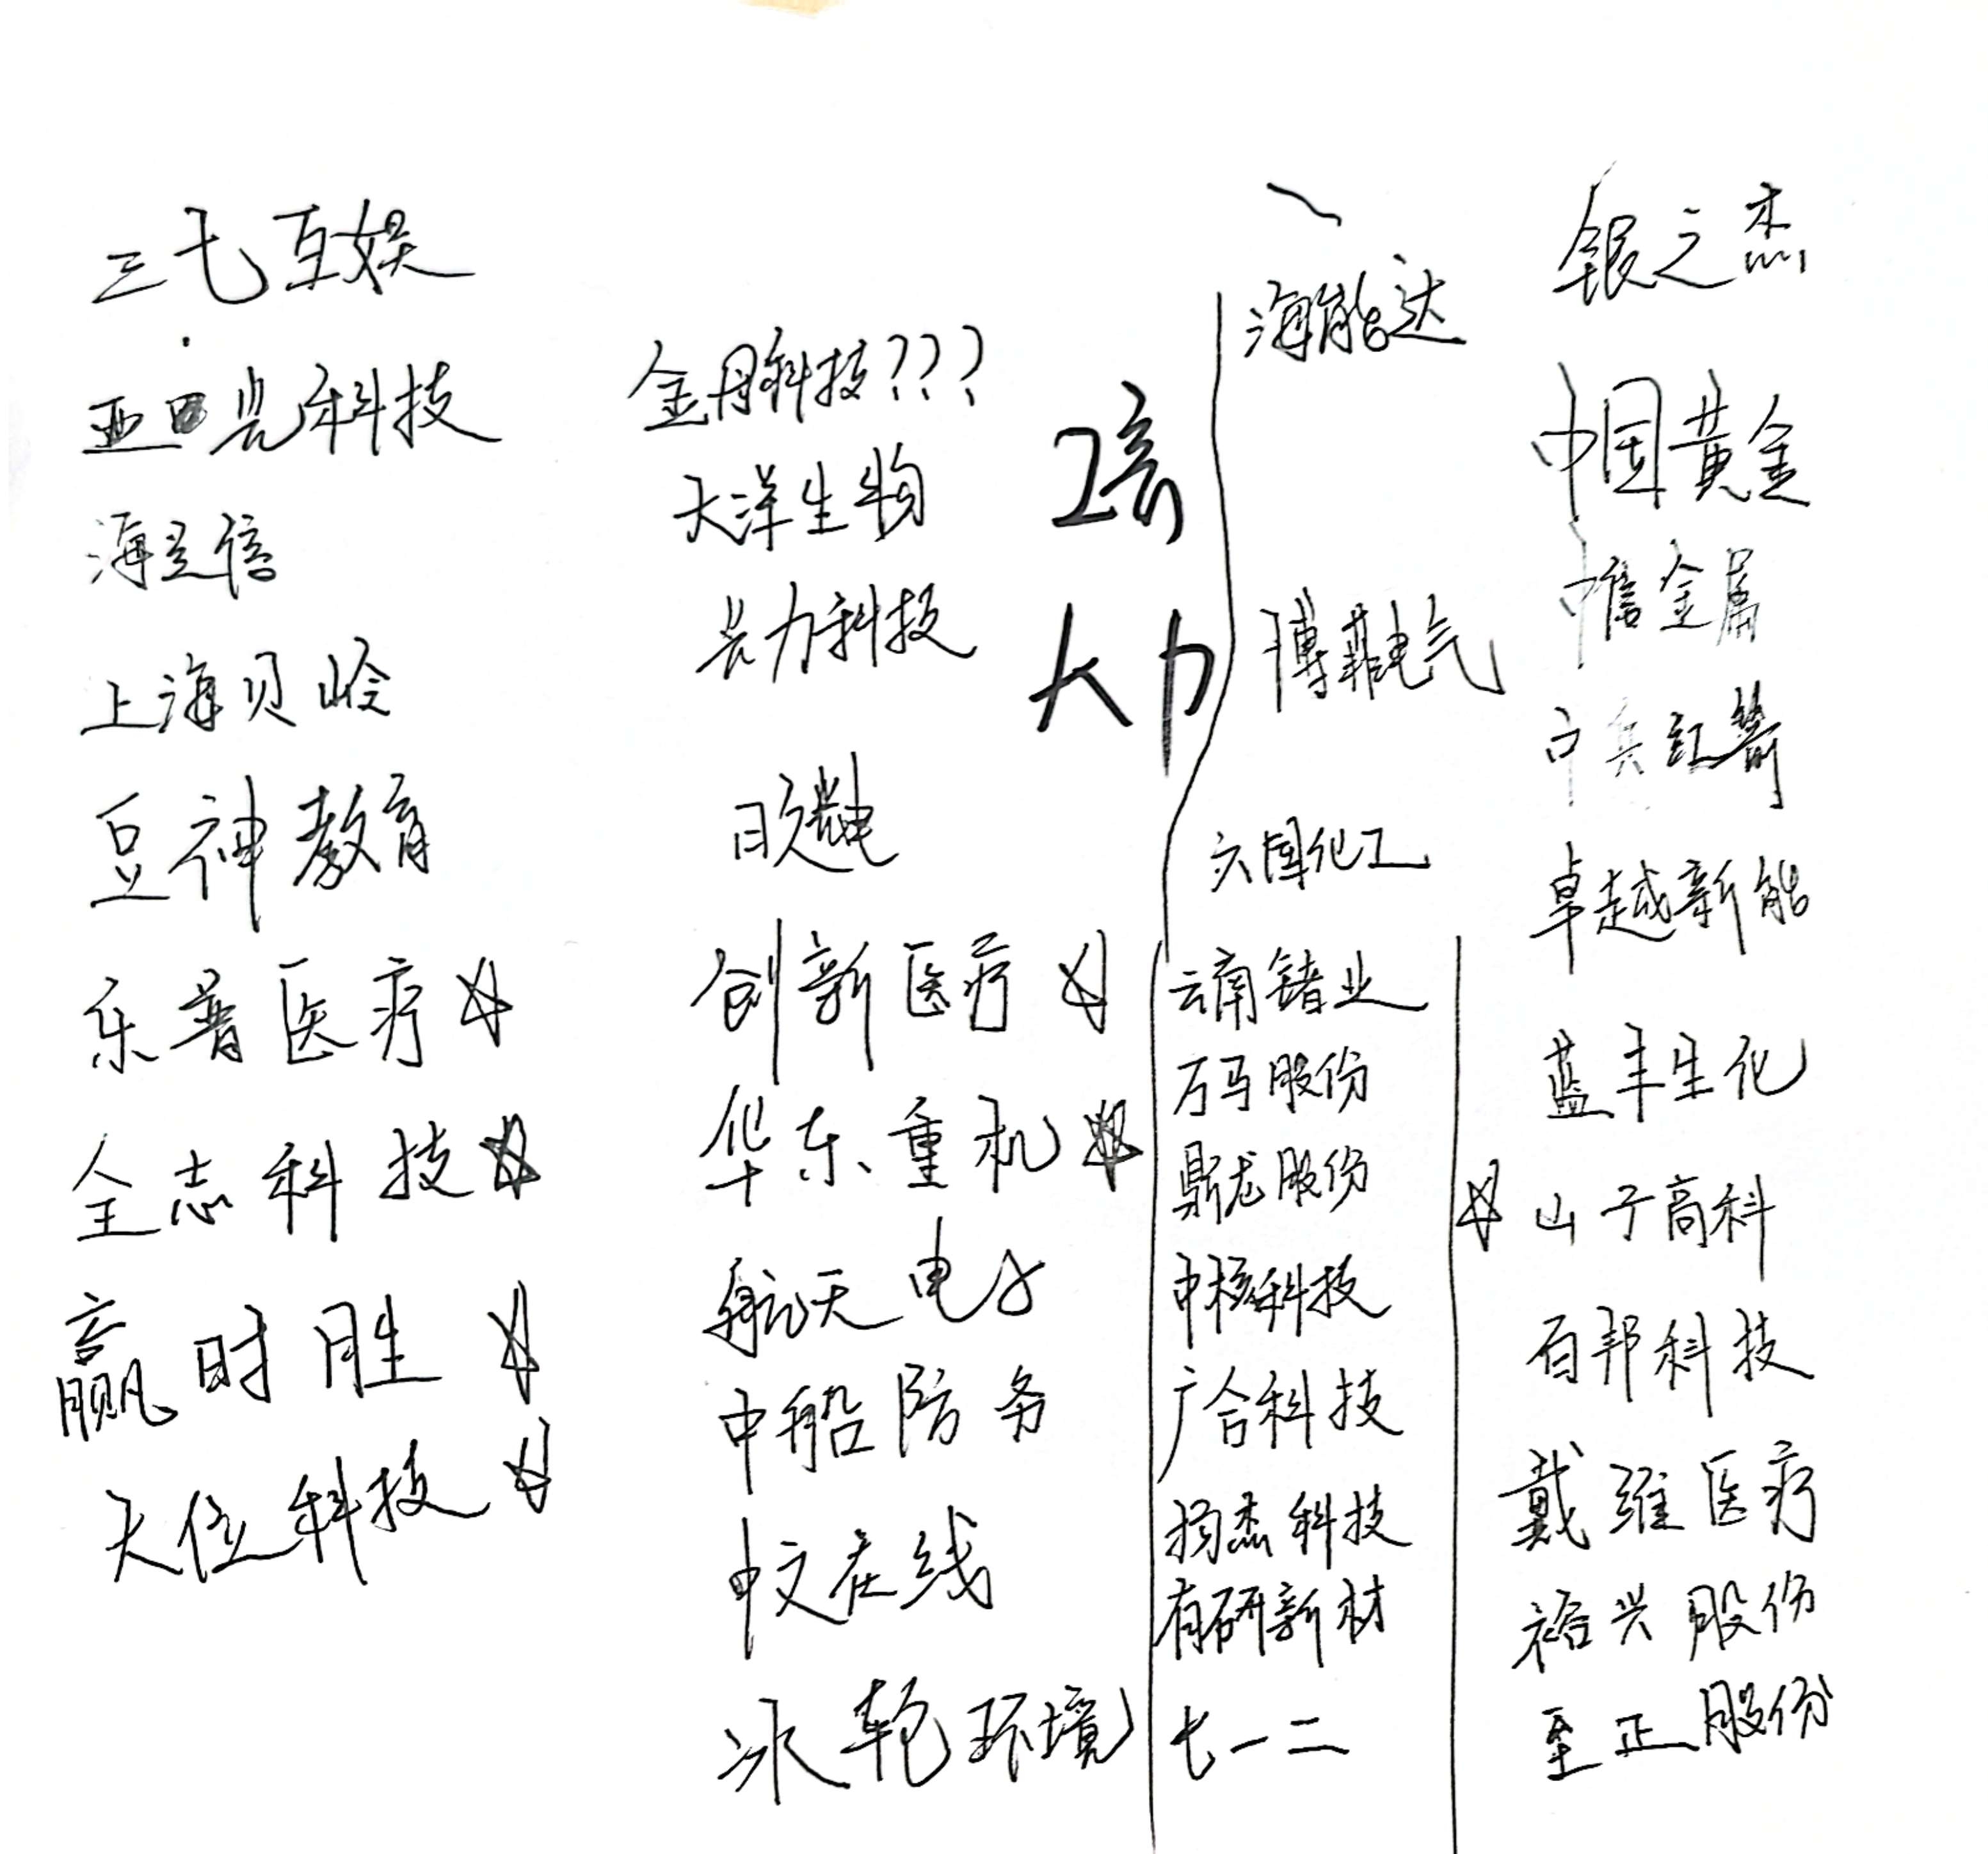 三七互娱
亚光科技
海立信
上海贝岭
豆神教育
乐普医疗☆
全志科技☆
赢时胜☆
大位科技☆
金丹科技???
大洋生物
长力科技
日久光电
创新医疗☆
华东重机☆
航天电子
中船防务
中文在线
冰轮环境
大
海能达
博菲电气
六国化工
云南锗业
万马股份
鼎龙股份
中核科技
广合科技
扬杰科技
有研新材
七一二
银之杰
中国黄金
中信金属
中兵红箭
卓越新能
蓝丰生化
☆山子高科
百邦科技
戴维医疗
裕兴股份
至正股份